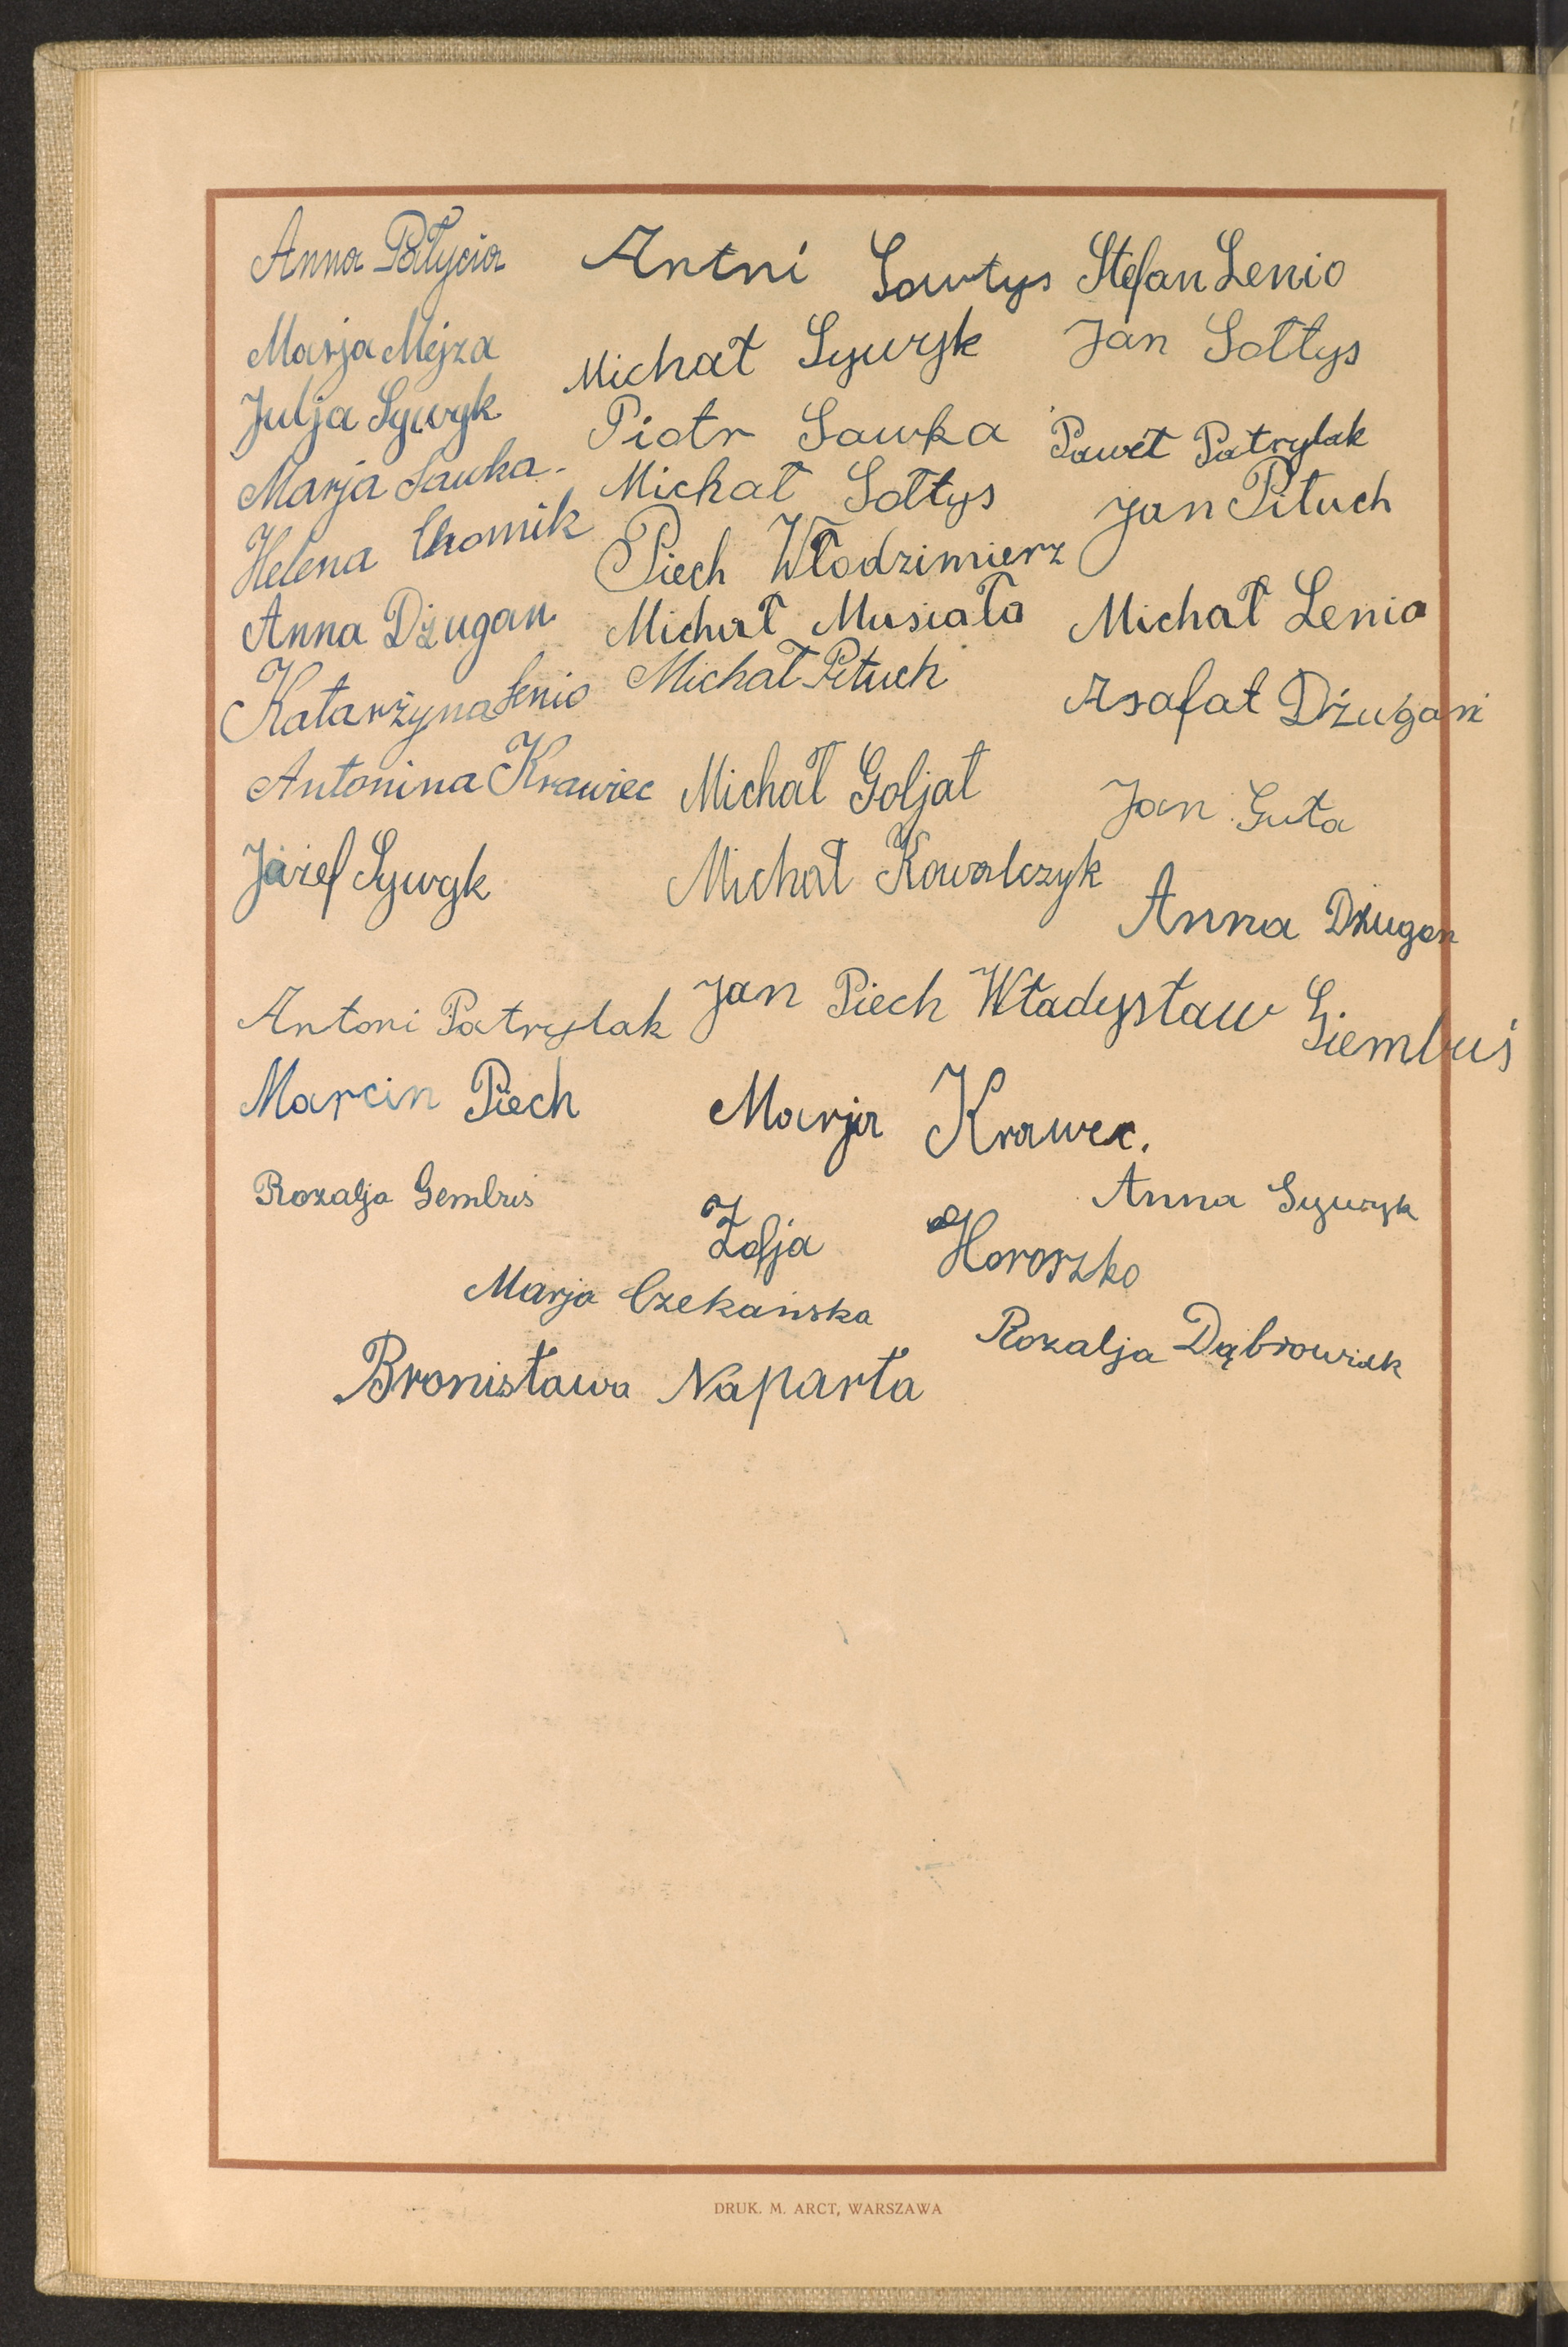 Anna Pałycia Antni Sowtys Stefan Lenio
Marja Mejza Michał Sywyk Jan Sołtys
Julja Sywyk Piotr Sawka Paweł Patrylak
Marja Sawka. Michał Sołtys Jan Pituch
Helena Chomik Piech Włodzimierz
Anna Dżugan Michał Musiała Michał Lenio
Katarżyna Lenio Michał Pituch Asafat Dżugań
Antonina Krawiec Michał Goljat Jan Guta
Józef Sywyk Michał Kowalczyk Anna Dżugan
Antoni Patrylak Jan Piech Władysław Giembuś
Marcin Piech Marja Krawec.
Rozalja Gembuś Anna Sywyk
Zofja Horoszko
Marja Czekańska Rozalja Dąbrowiak
Bronisława Naparła
DRUK. M. ARCT, WARSZAWA